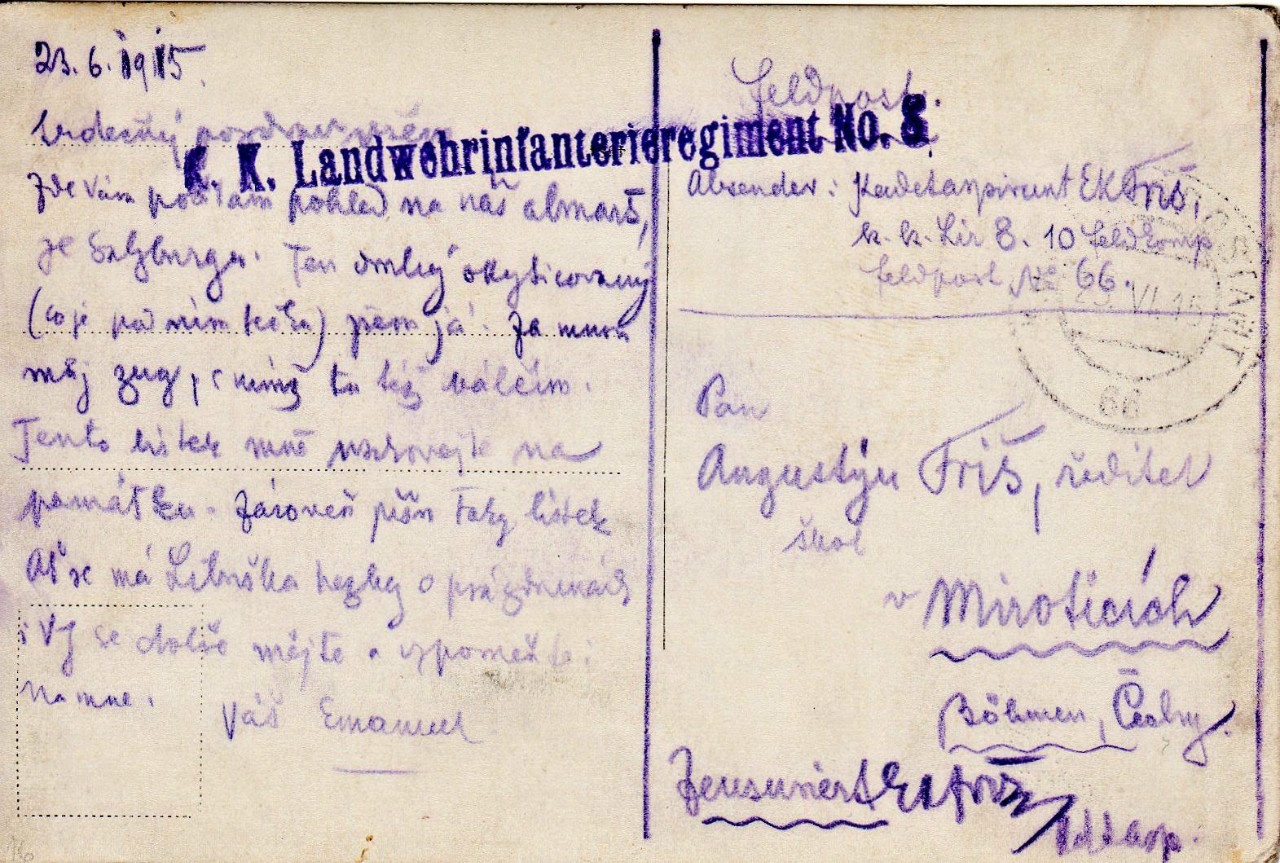 23.6.1915.
Srdečný pozdrav všem
K. K. Landwehrinfanterieregiment No. 8
Zde Vám posílám pohled na náš almarš,
ze Salzburgu. Ten okyticovaný
(co je pod ním) jsem já. Za mnou
můj zug, s nímž tu též válčím.
Tento lístek mně uschovejte na
památku. Zároveň píšu taky lístek
Ať se má Libuška hezky o prázdninách
i Vy se dobře mějte a vzpomeňte si
na mne.
Váš Emanuel
Feldpost.
Absender: Kadetaspirant EK Friš,
k. k. Lir 8. 10 Feldkomp
Feldpost No 66.
VI. 15
66
Pan
Augustýn Friš, ředitel
škol
v Miroticích
Böhmen, Čechy.
Zensuriert EK Friš
Kdtasp.